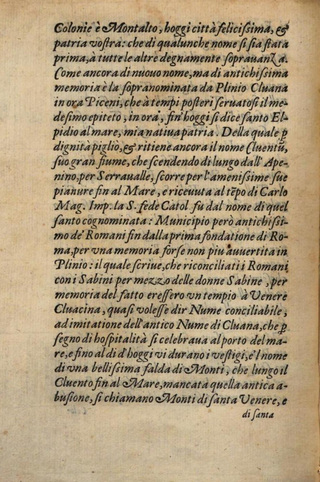 Colonie è Montalto, hoggi città felicissima, &
patria vostra: che di qualunche nome si sia stata
prima, à tutte le altre degnamente sopravanza.
Come ancora di nuouo nome, ma di antichissima
memoria è la sopranominata da Plinio Cluana
in ora Piceni, che à tempi posteri seruatosi il me-
desimo epiteto, in ora, fin'hoggi si dice santo El-
pidio al mare, mia natiua patria. Della quale p
dignità piglio, & ritiene ancora il nome Cluentū,
suo gran fiume, che scendendo di lungo dall'Ape-
nino, per Serraualle, scorre per l'amenissime sue
pianure fin al Mare, e riceuuta al tēpo di Carlo
Mag. Imp. la S. fede Catol. fu dal nome di quel
santo cognominata: Municipio però antichissi-
mo de' Romani fin dalla prima fondatione di Ro-
ma, per vna memoria forse non piu auuertita in
Plinio: il quale scriue, che riconciliati i Romani
con i Sabini per mezzo delle donne Sabine, per
memoria del fatto eressero vn tempio à Venere
Cluacina, quasi volesse dir Nume conciliabile,
ad imitatione dell'antico Nume di Cluana, che p
segno di hospitalità si celebraua al porto del ma-
re, e fino al dì d'hoggi vi durano i vestigi, e'l nome
di vna bellissima falda di Monti, che lungo il
Cluento fin al Mare, mancata quella antica a-
busione, si chiamano Monti di santa Venere, e
di santa